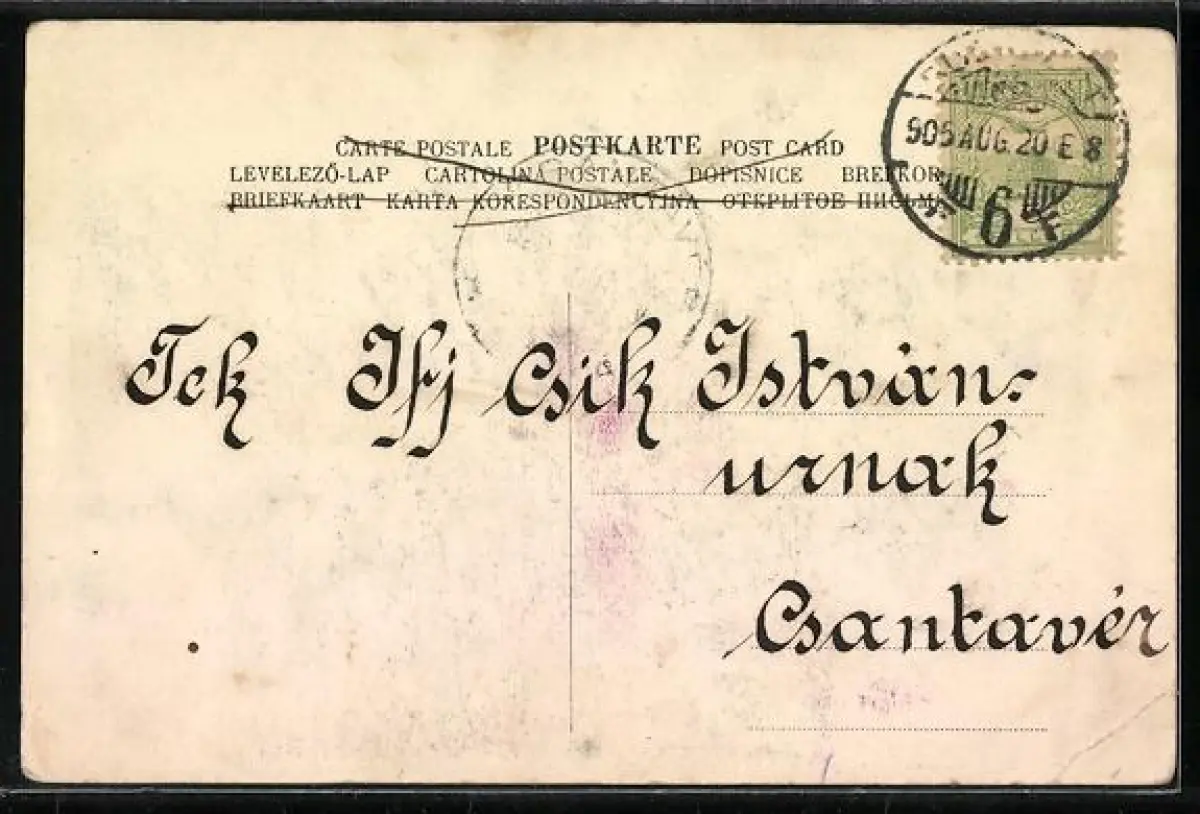 CARTE POSTALE POSTKARTE POST CARD
LEVELEZŐ-LAP CARTOLINA POSTALE DOPISNICE BREFKOR
BRIEFKAART KARTA KORESPONDENCYJNA ОТКРЫТОЕ ПИСЬМ
905 AUG. 20 E 8
6
Tek Ifj Csik István-
urnak
Csantavér